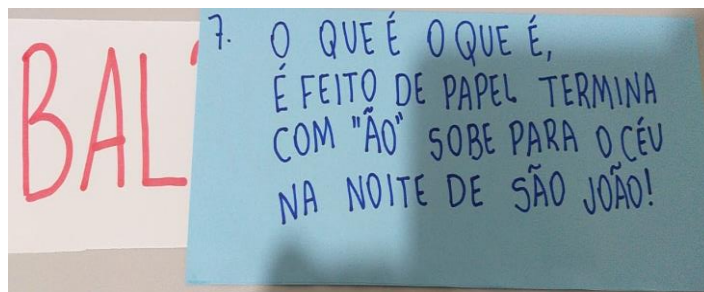 BAL
7. O QUE É O QUE É,
É FEITO DE PAPEL TERMINA
COM "ÃO" SOBE PARA O CÉU
NA NOITE DE SÃO JOÃO!